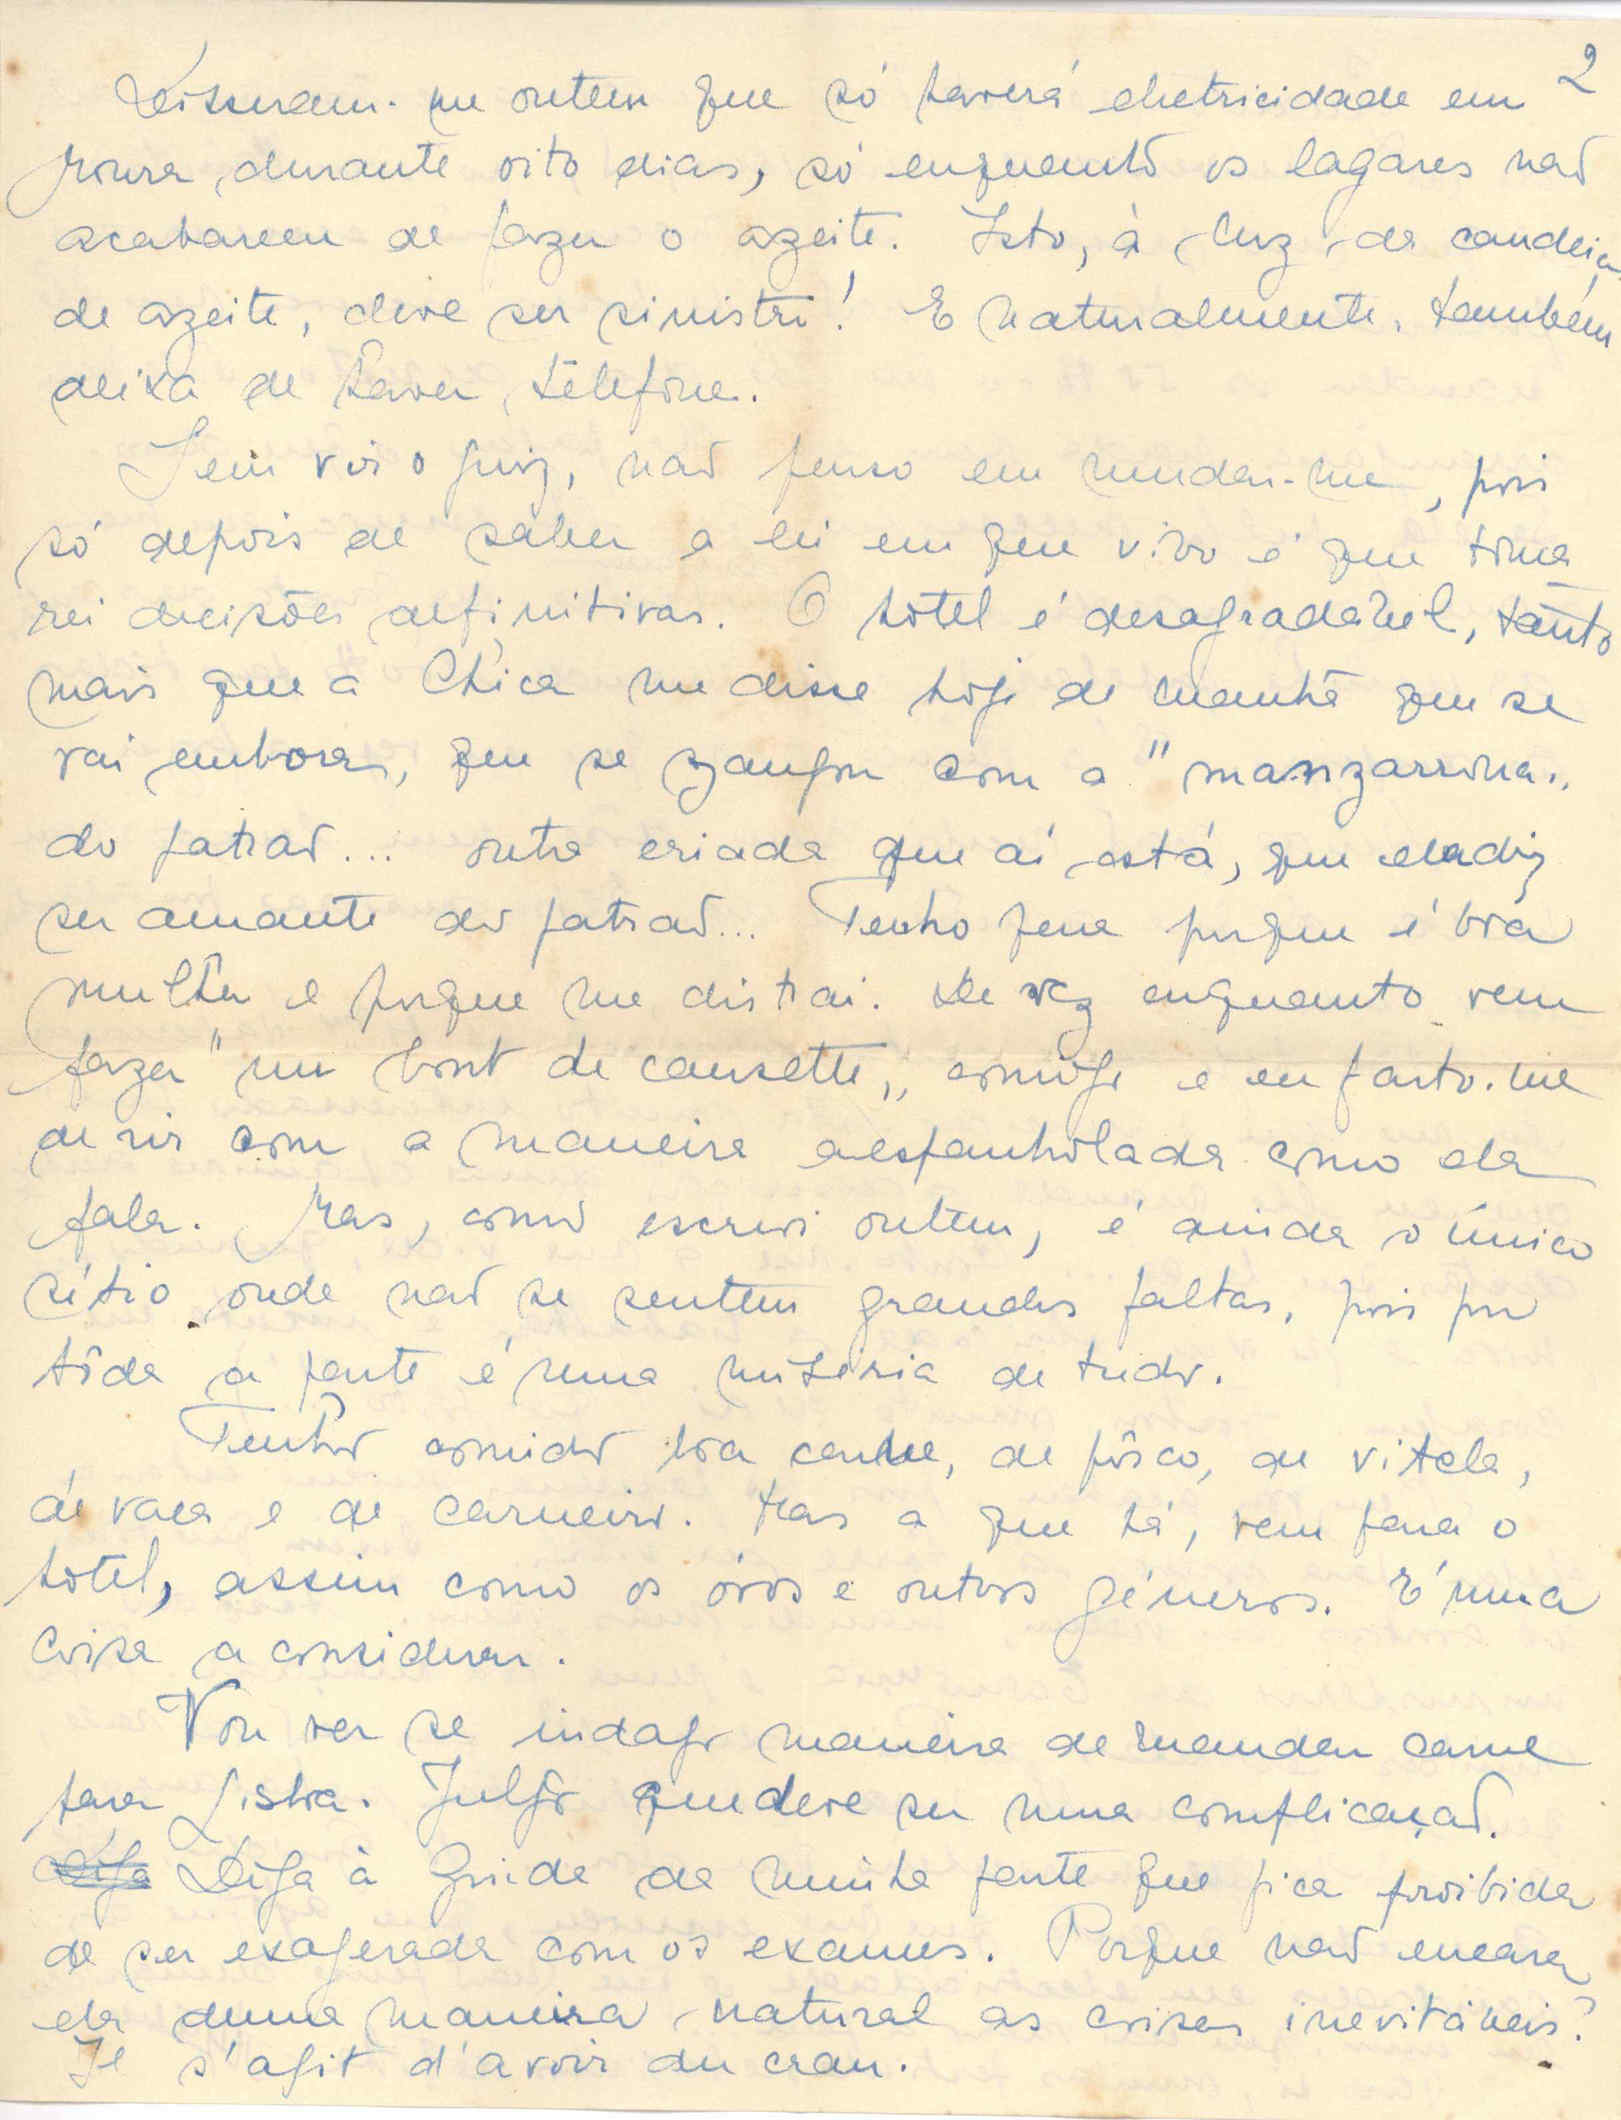 2
Disseram-me ontem que só haverá eletricidade em
Moura durante oito dias, só enquanto os lagares não
acabarem de fazer o azeite. Isto, à luz da candeia
de azeite, deve ser sinistro! E naturalmente, também
deixa de haver telefone.
Sem vir o Juiz, não penso em mudar-me, pois
só depois de saber a lei em que vivo é que toma
rei decisões definitivas. O hotel é desagradável, tanto
mais que a Chica me disse hoje de manhã que se
vai embora, que se zangou com a "manzarrona"
do patrão... outra criada que aí está, que ela diz
ser amante do patrão... Tenho pena porque é boa
mulher e porque me distrai. De vez enquanto vem
fazer "un bout de causette" comigo e eu farto-me
de rir com a maneira aespanholada como ela
fala. Mas, como escrevi ontem, é ainda o único
sítio onde não se sentem grandes faltas, pois por
tôda a parte é uma miséria de tudo.
Tenho comido boa carne, de pôrco, de vitela,
de vaca e de carneiro. Mas a que há, vem para o
hotel, assim como os óvos e outros géneros. É uma
coisa a considerar.
Vou ver se indago maneira de mandar carne
para Lisboa. Julgo que deve ser uma complicação.
Diga Diga à Guida da minha parte que fica proibida
de ser exagerada com os exames. Porque não encara
ela duma maneira natural as coisas inevitáveis?
Il s'agit d'avoir du cran.